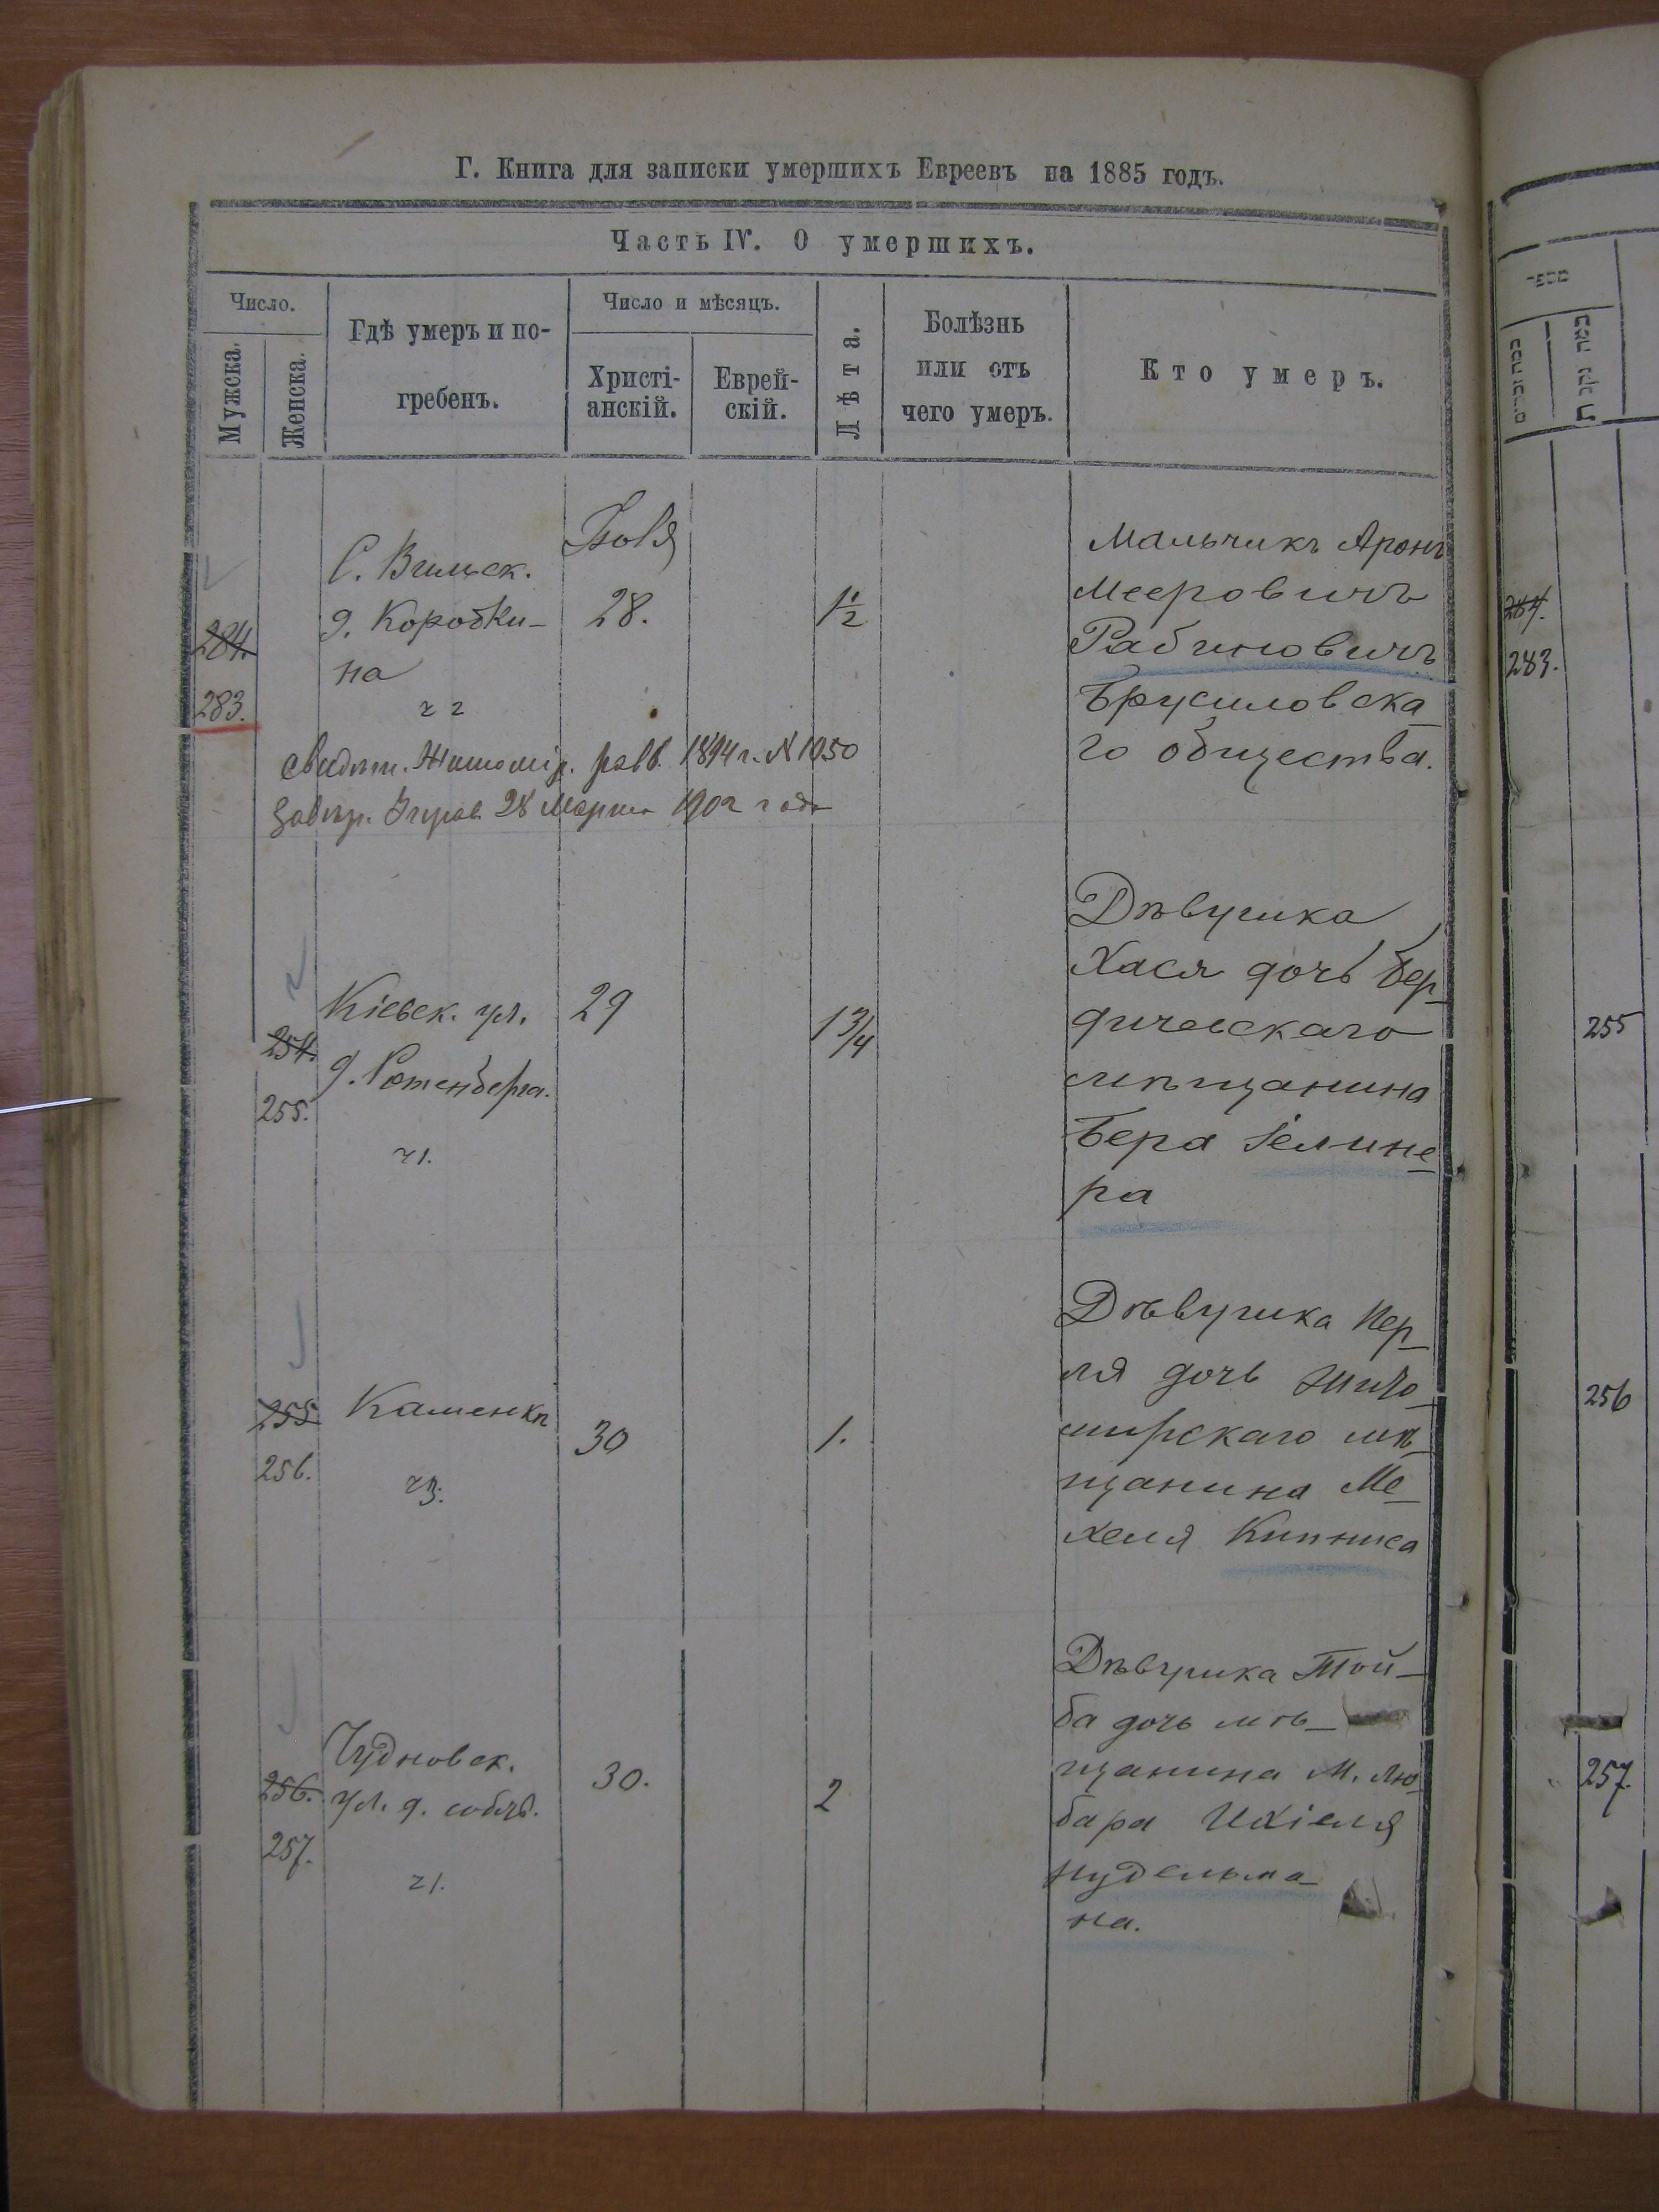 Г. Книга для записки умершихъ Евреевъ на 1885 годъ.
Часть IV. О умершихъ.
Число.
Мужска.
Женска.
Гдѣ умеръ и по-
гребенъ.
Число и мѣсяцъ.
Христі-
анскій.
Еврей-
скій.
Лѣта.
Болѣзнь
или отъ
чего умеръ.
Кто умеръ.
284.
283.
С. Вильск.
д. Коробки-
на
ч 2
28.
1 1/2
Мальчикъ Аронъ
Мееровичъ
Рабиновичъ
Брусиловска
го общества.
свидѣт. Житомір. 1894 г. № 1050
28 Марта 1902 года
254.
255.
Кіевск. ул.
д. Ротенберга.
ч 1.
29
1 3/4
Дѣвушка
Хася дочь Бер-
дичевскаго
мѣщанина
Бера Гелине-
ра
255
256.
Каменка
ч 3.
30
1.
Дѣвушка Пер-
ля дочь Жито-
мирскаго мѣ-
щанина Ме-
хеля Кипниса
256.
257.
Чудновск.
ул. д. собств.
ч 1.
30.
2
Дѣвушка Той-
ба дочь мѣ-
щанина М. Лю
бара Ихіеля
Нудельма-
на.
מספר
284.
283.
255
256
257.